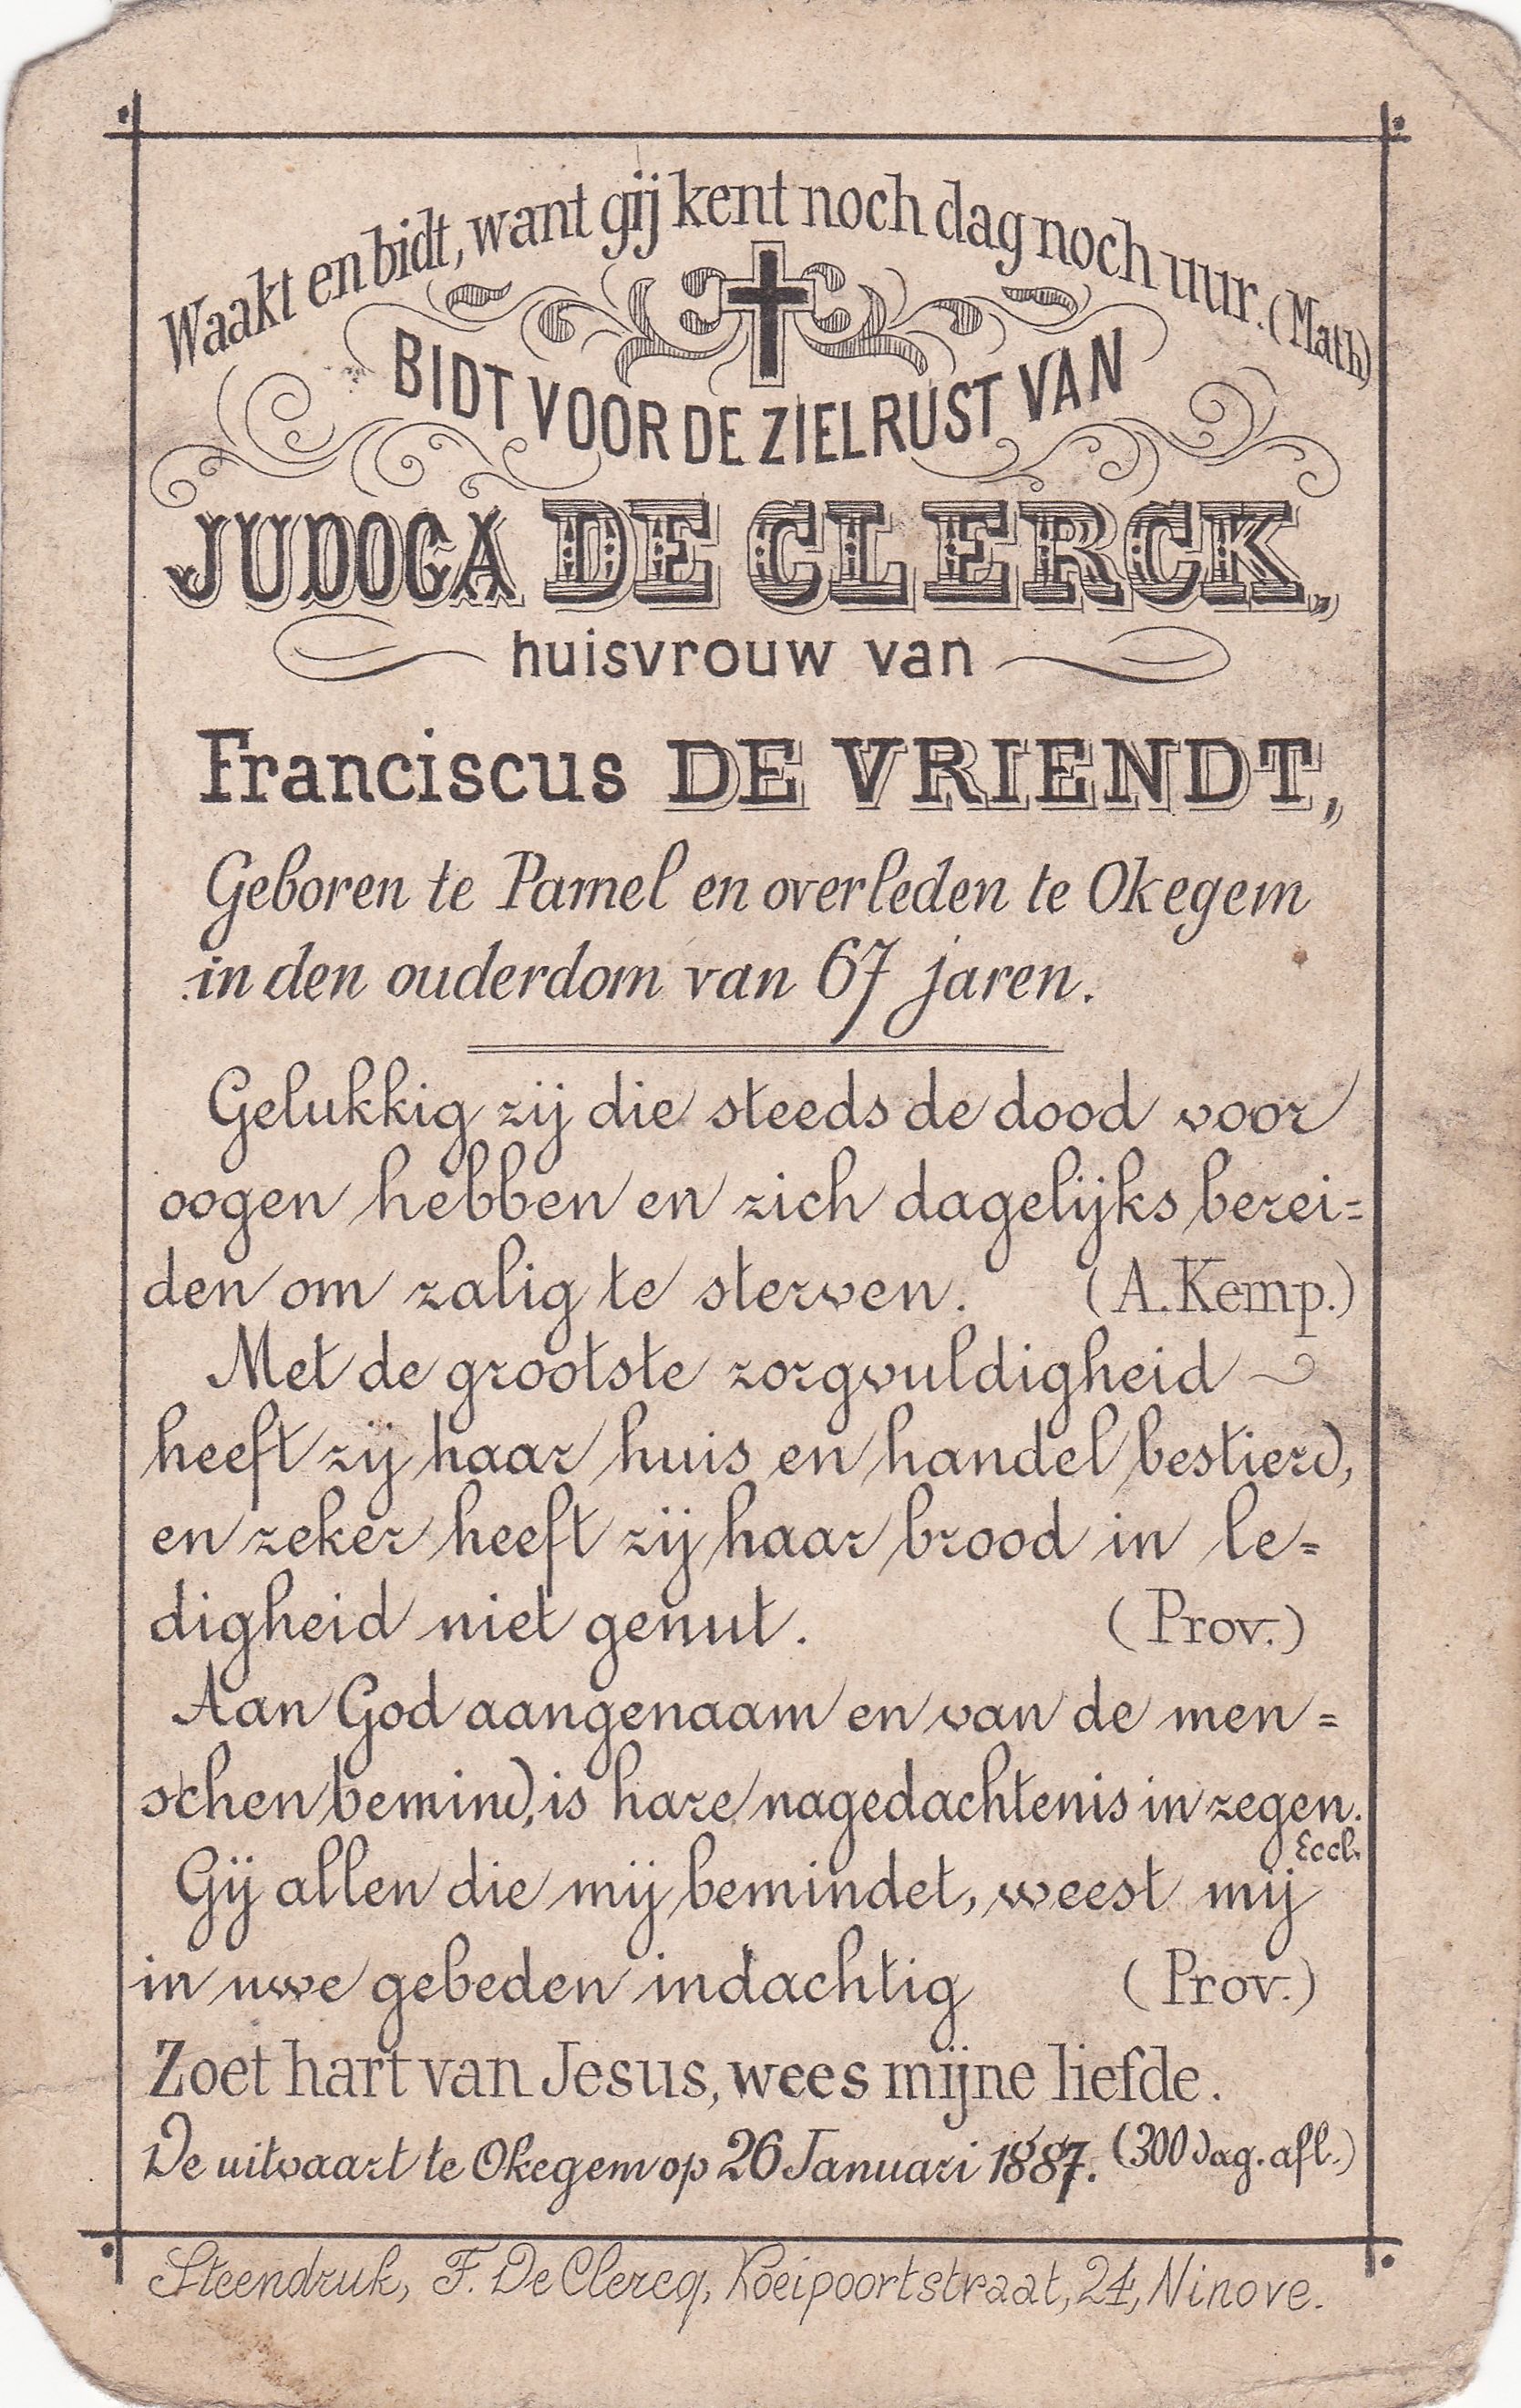 Waakt en bidt, want gij kent noch dag noch uur. (Math)
BIDT VOOR DE ZIELRUST VAN
JUDOCA DE CLERCK,
huisvrouw van
Franciscus DE VRIENDT,
Geboren te Pamel en overleden te Okegem
in den ouderdom van 67 jaren.
Gelukkig zij die steeds de dood voor
oogen hebben en zich dagelijks berei=
den om zalig te sterven. (A. Kemp.)
Met de grootste zorgvuldigheid
heeft zij haar huis en handel bestierd,
en zeker heeft zij haar brood in le=
digheid niet genut. (Prov.)
Aan God aangenaam en van de men=
schen bemind, is hare nagedachtenis in zegen.
Eccl.
Gij allen die mij bemindet, weest mij
in uwe gebeden indachtig (Prov.)
Zoet hart van Jesus, wees mijne liefde.
De uitvaart te Okegem op 26 Januari 1887. (300 dag. afl.)
Steendruk, F. De Clercq, Koeipoortstraat, 24, Ninove.